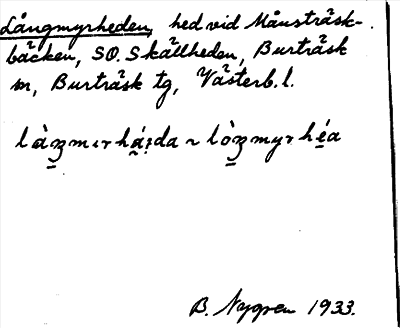 Långmyrheden, hed vid Månsträsk-
bäcken, SO. Skällheden, Burträsk
sn, Burträsk tg, Västerb. l.
B. Nygren 1933.